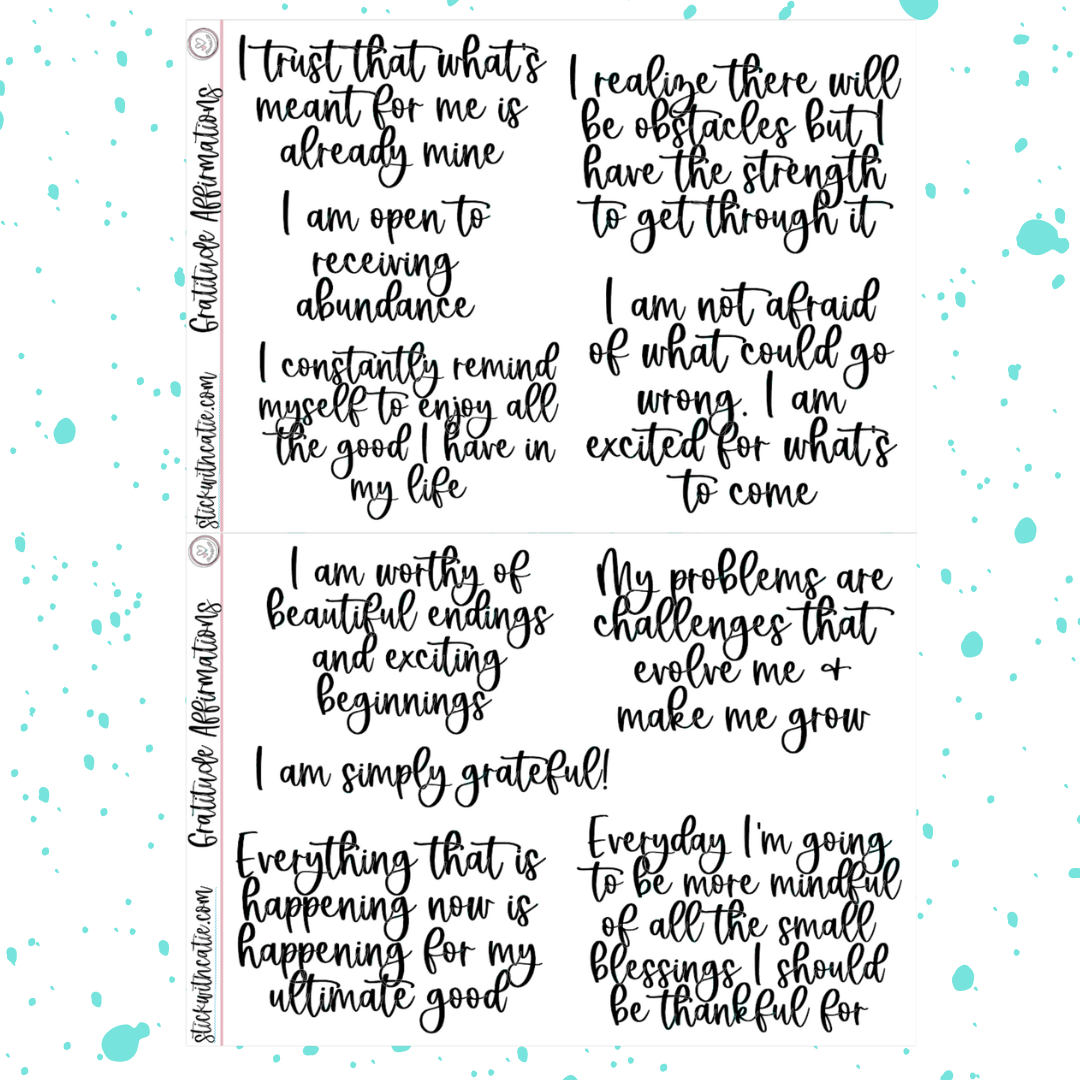 Gratitude Affirmations
stickwithcatie.com
I trust that what's
meant for me is
already mine
I am open to
receiving
abundance
I constantly remind
myself to enjoy all
the good I have in
my life
I realize there will
be obstacles but I
have the strength
to get through it
I am not afraid
of what could go
wrong. I am
excited for what's
to come
Gratitude Affirmations
stickwithcatie.com
I am worthy of
beautiful endings
and exciting
beginnings
I am simply grateful!
Everything that is
happening now is
happening for my
ultimate good
My problems are
challenges that
evolve me +
make me grow
Everyday I'm going
to be more mindful
of all the small
blessings I should
be thankful for